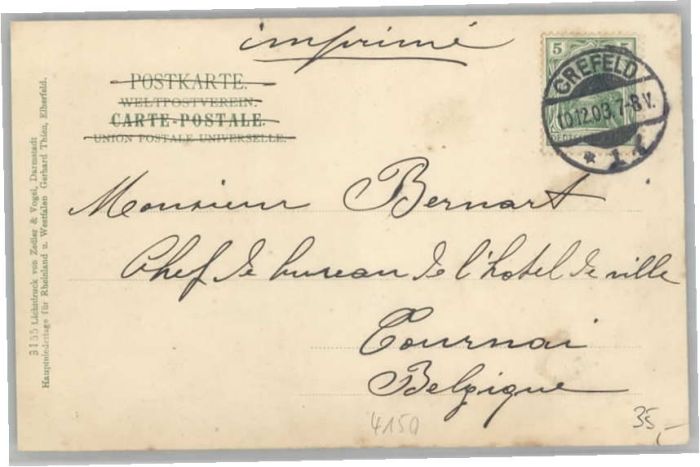 imprimé
POSTKARTE.
WELTPOSTVEREIN.
CARTE-POSTALE.
UNION POSTALE UNIVERSELLE.
5 5
CREFELD
10.12.03. 7-8 V.
* 1 f
Monsieur Bernart
Chef de bureau de l'hotel de ville
Tournai
Belgique
4150
35,-
3155 Lichtdruck von Zedler & Vogel, Darmstadt
Hauptniederlage für Rheinland u. Westfalen Gerhard Thien, Elberfeld.